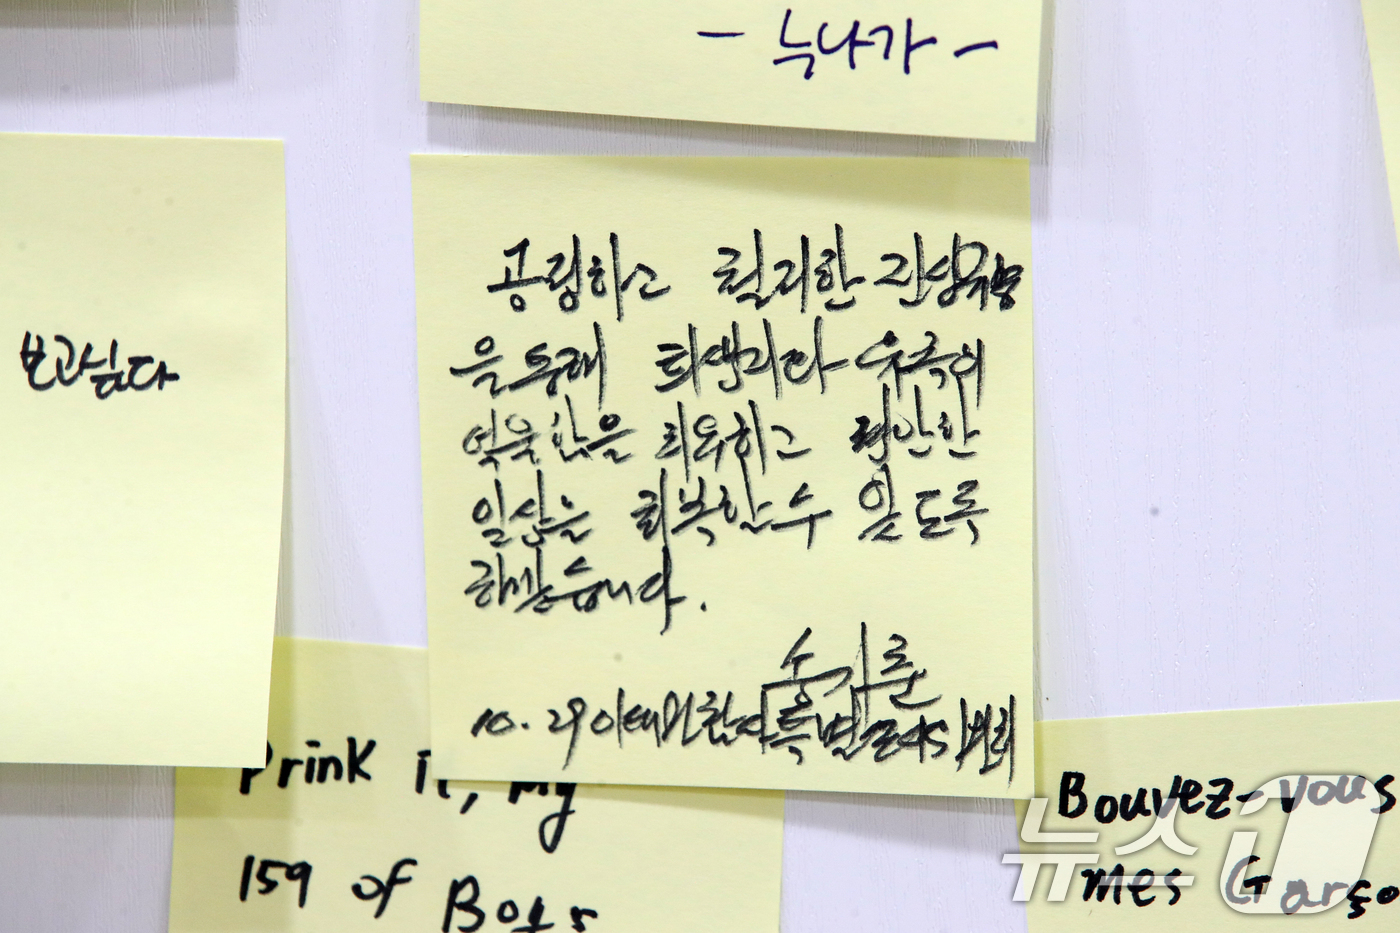 - 늑나가 -
보고싶다
공정하고 철저한 진상규명
을 통해 희생자와 유족의
억울함을 치유하고 편안한
일상을 회복할 수 있도록
하겠습니다.
송기춘
10.29이태원참사특별조사위원회
Drink it, my
159 of Boys
Bouvez-vous
mes Garço
뉴스1